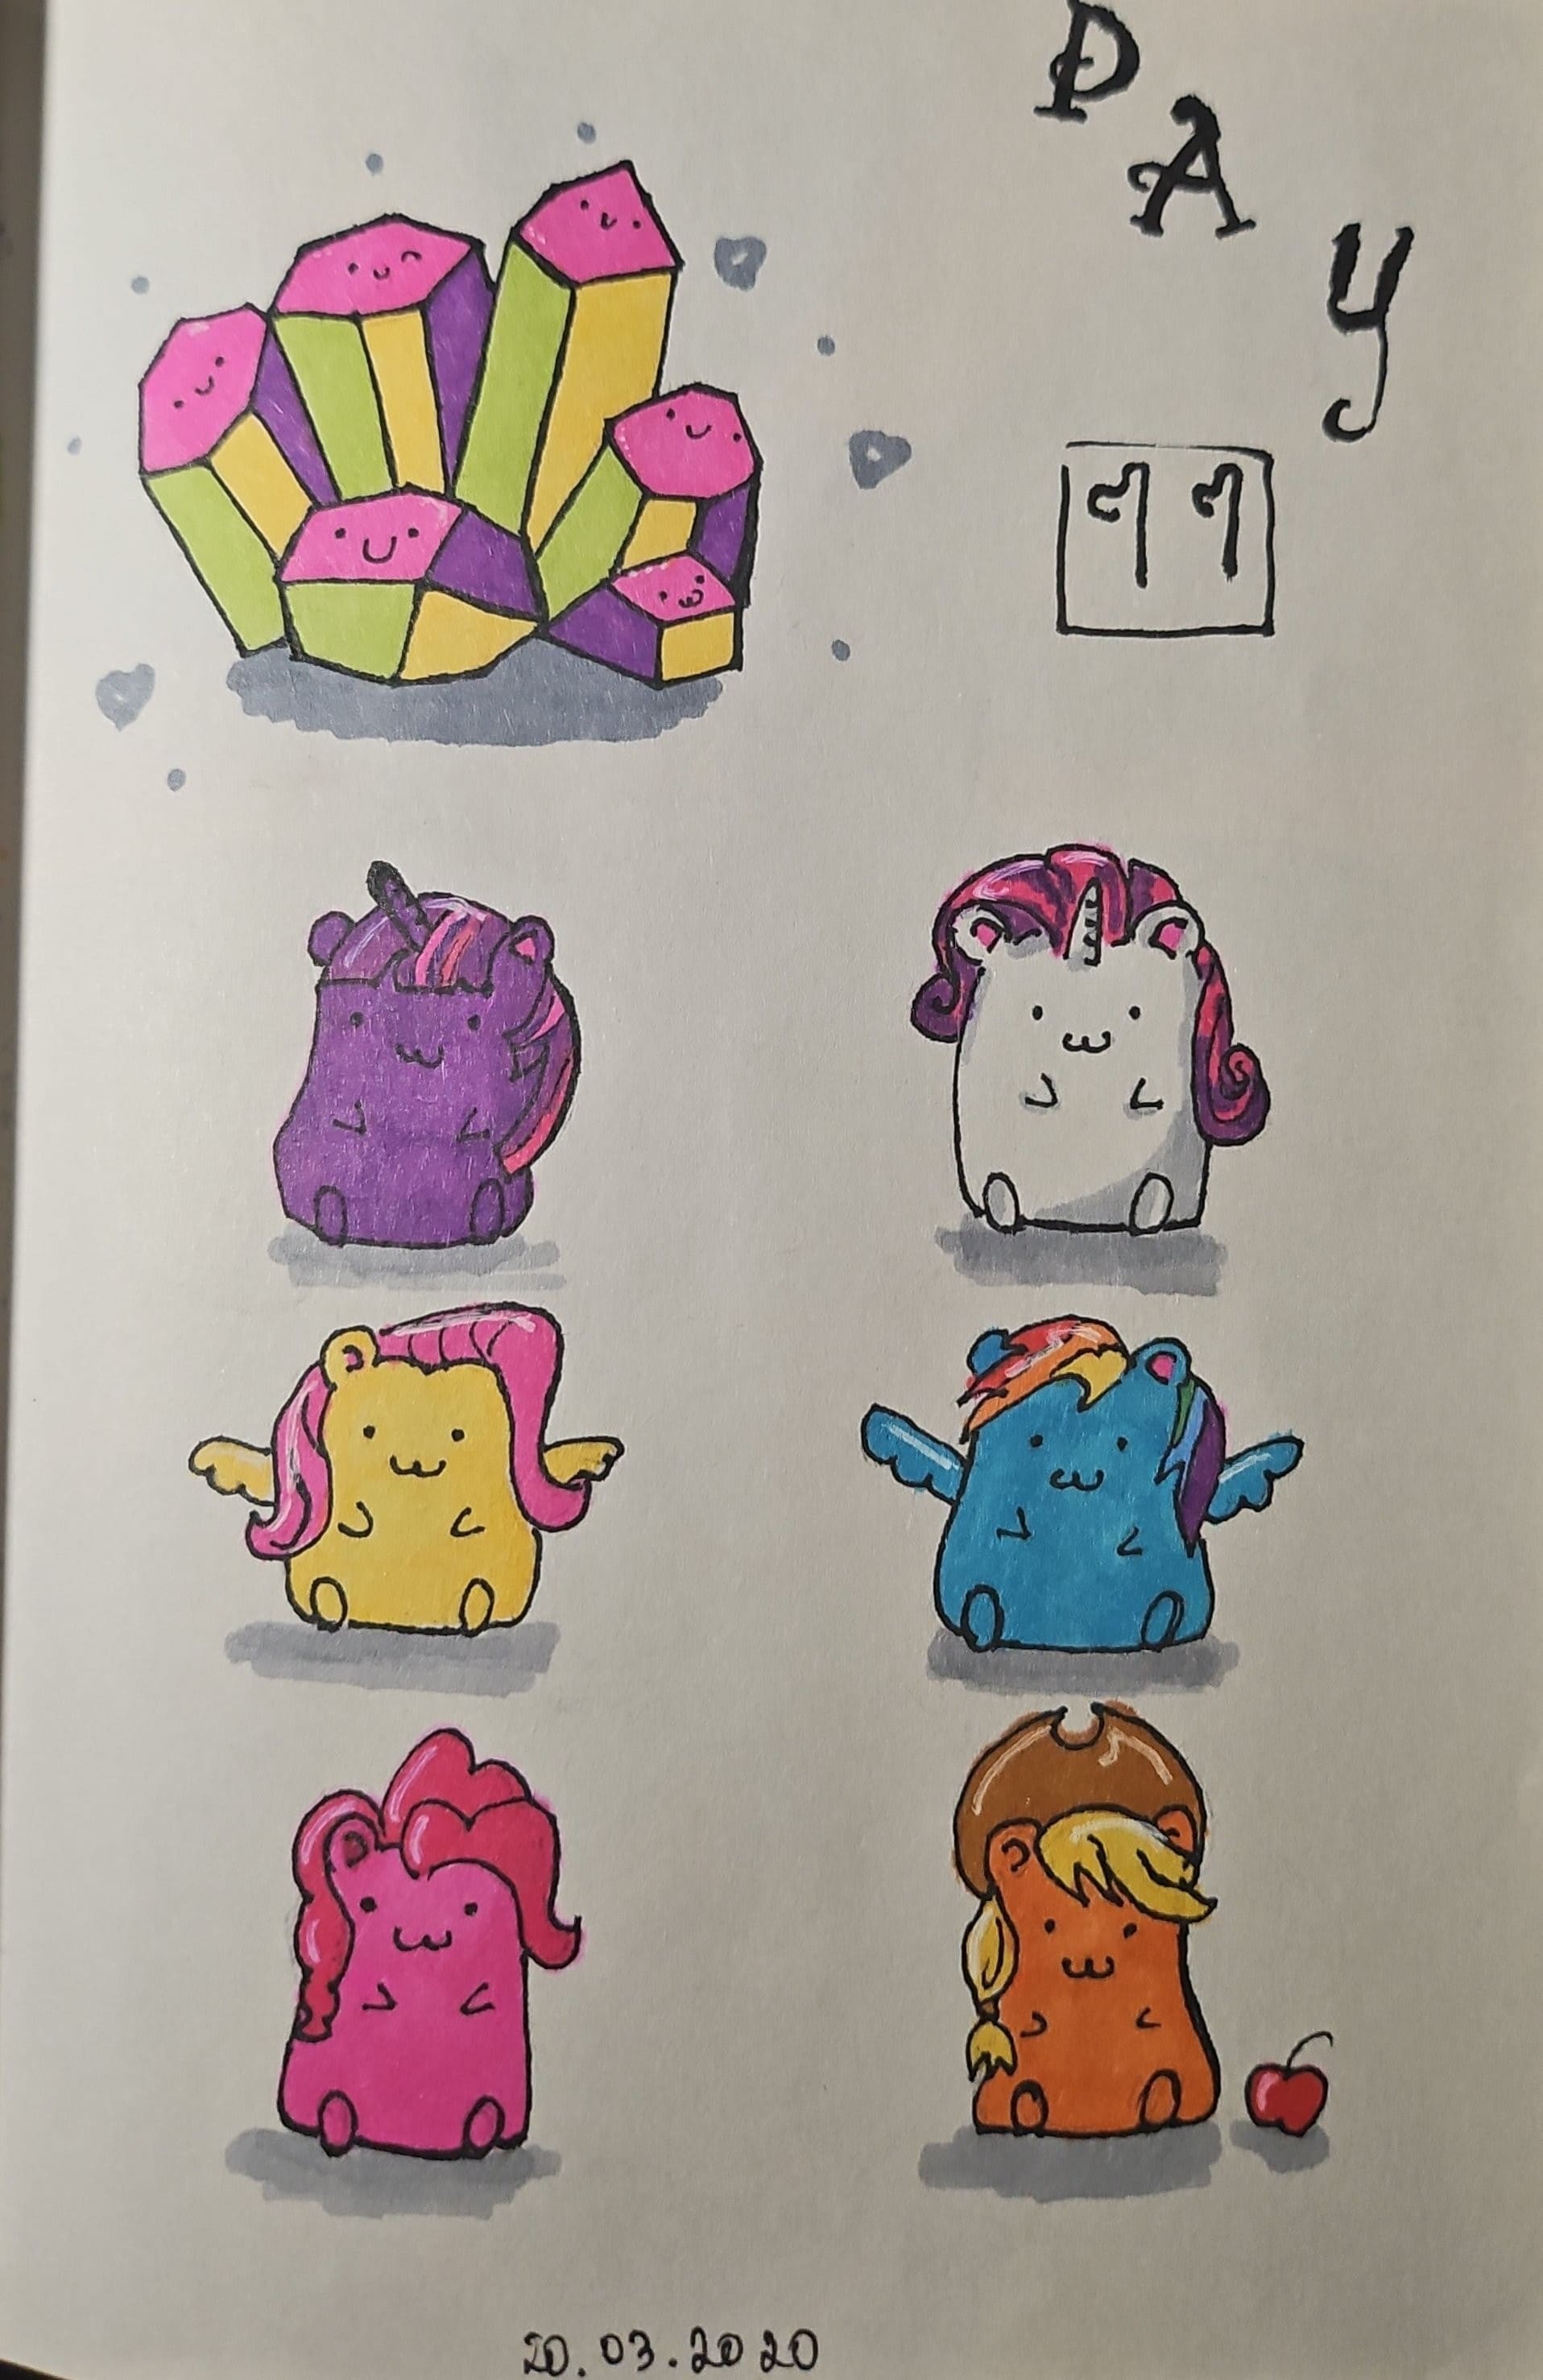 DAY
11
20.03.2020